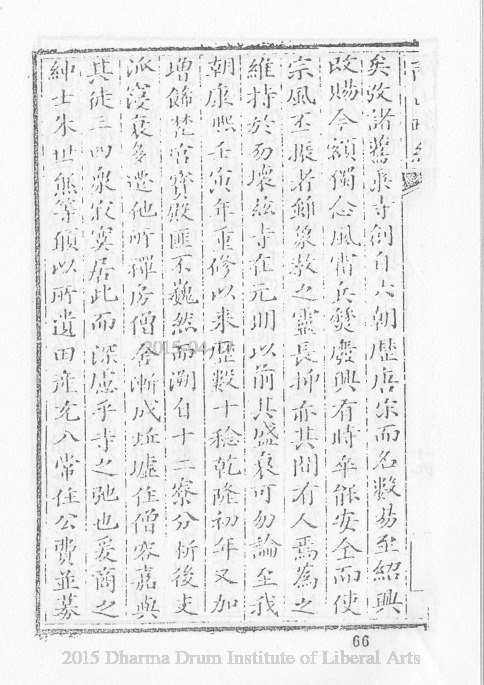 矣攷諸舊乘寺創自六朝歷唐宋而名數易至紹興
改賜今額獨念風霄兵燹廢興有時卒能安全而使
宗風丕振者雖象教之靈長抑亦其間有人焉為之
維持於勿壞茲寺在元明以前其盛衰可勿論至我
朝康熙壬寅年重修以來歷數十稔乾隆初年又加
增飾梵宮寶殿匪不巍然而溯自十二寮分析後支
派寖衰多遷他所禪房僧舍漸成坵墟住僧容嘉與
其徒三四衆寂寞居此而深慮乎寺之弛也爰商之
紳士朱世熊等願以所遺田產充入常住公費並募
2015-04-
66
2015 Dharma Drum Institute of Liberal Arts